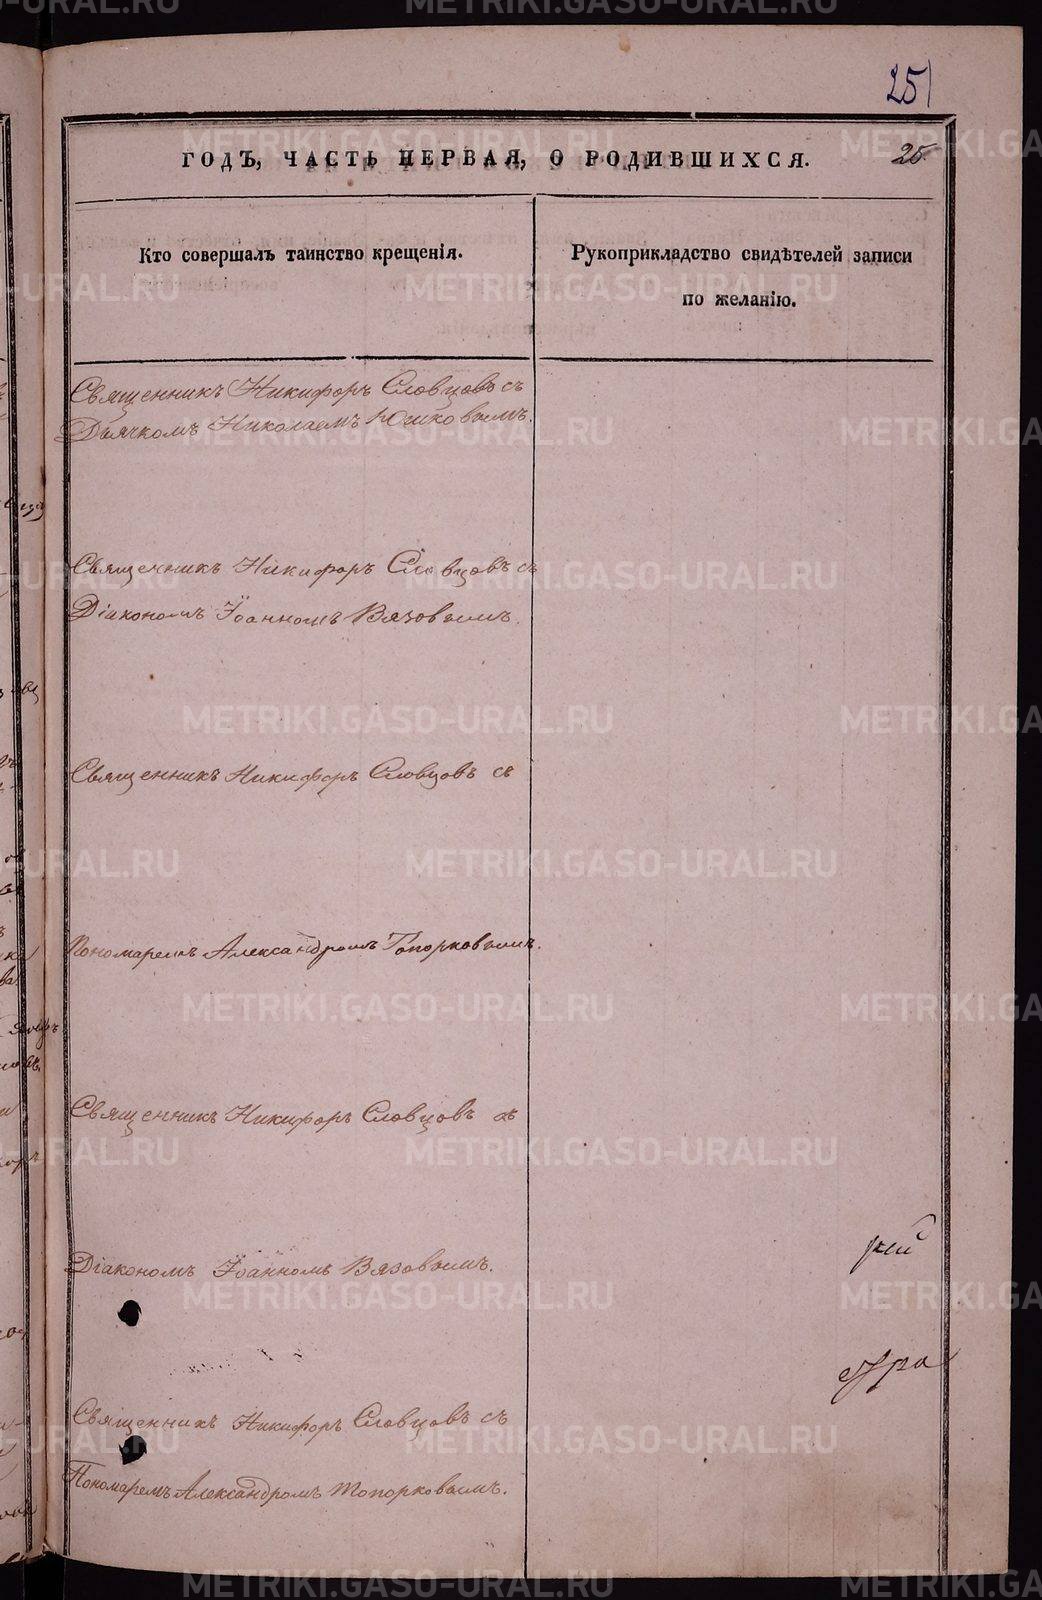 251
ГОДЪ, ЧАСТЬ ПЕРВАЯ, О РОДИВШИХСЯ.
25.
Кто совершалъ таинство крещенія.
Рукоприкладство свидѣтелей записи
по желанію.
Священникъ Никифоръ Словцовъ съ
Дьячкомъ Николаемъ Юшковымъ.
Священникъ Никифоръ Словцовъ съ
Діакономъ Іоанномъ Вязовымъ.
Священникъ Никифоръ Словцовъ съ
Пономаремъ Александромъ Топорковымъ.
Священникъ Никифоръ Словцовъ съ
Діакономъ Іоанномъ Вязовымъ.
Священникъ Никифоръ Словцовъ съ
Пономаремъ Александромъ Топорковымъ.
METRIKI.GASO-URAL.RU